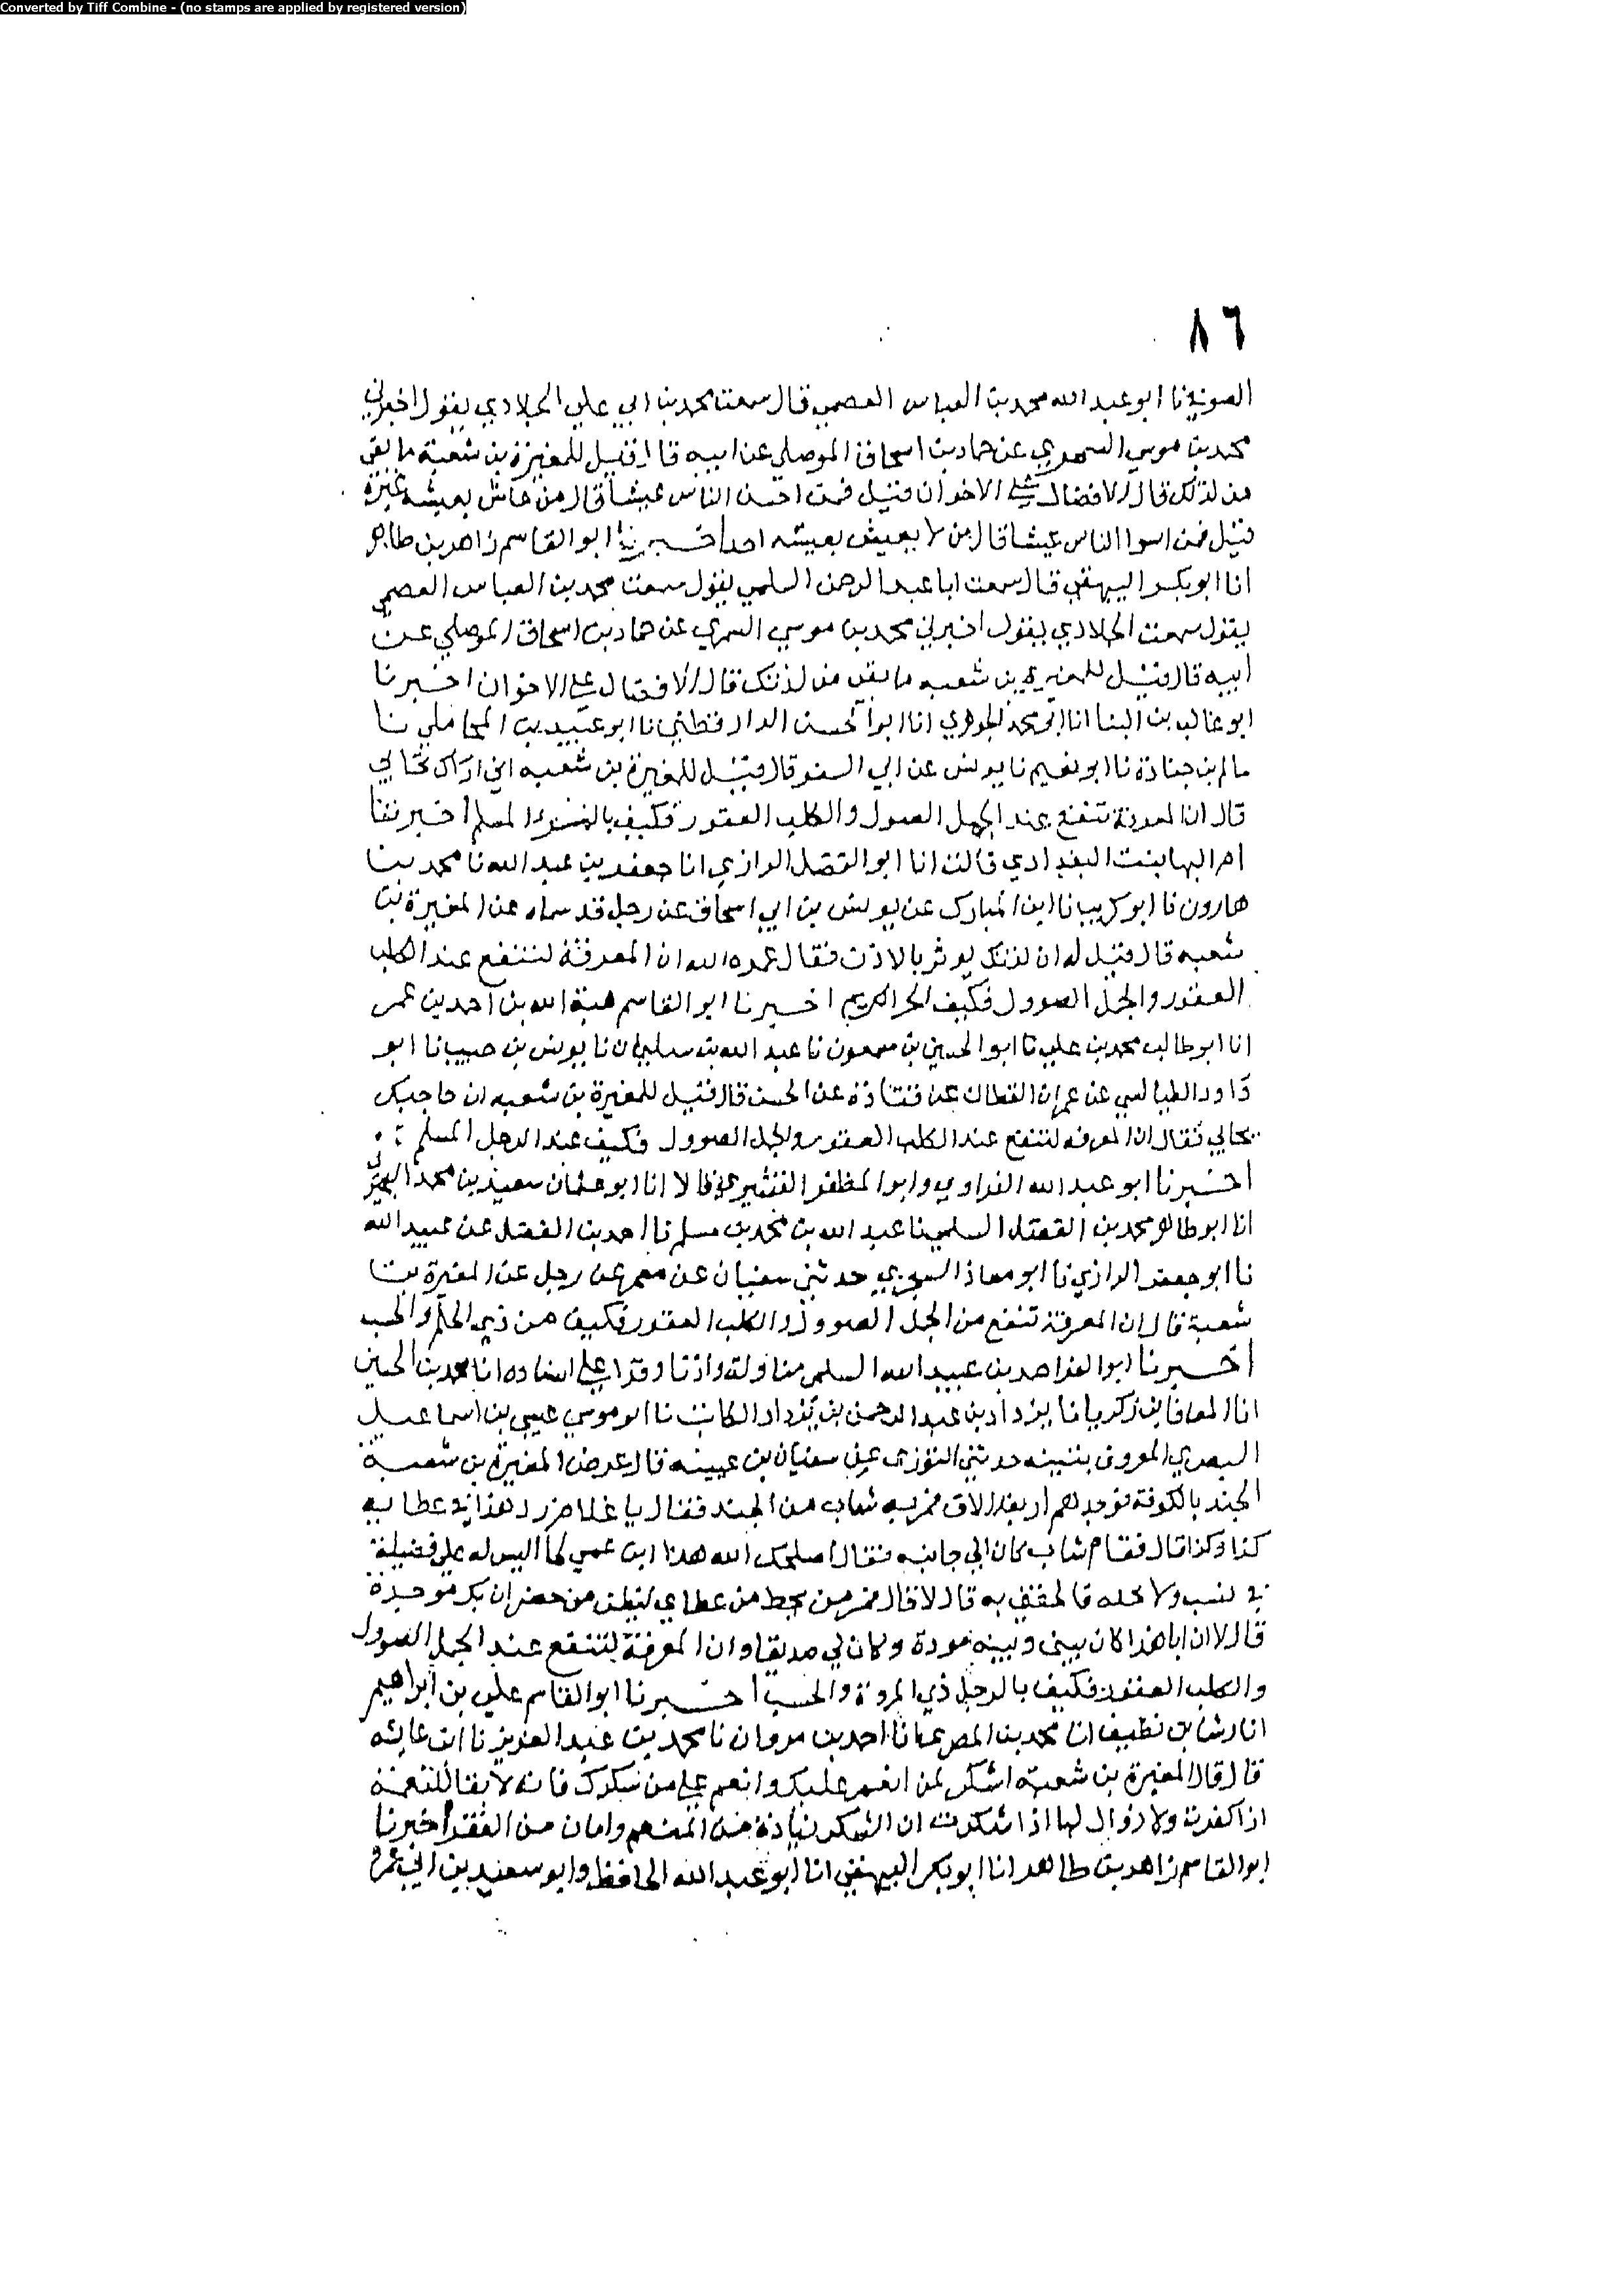 Converted by Tiff Combine - (no stamps are applied by registered version)
٨٦
الصوفي نا ابو عبد الله محمد بن العباس العصمي قال سمعت محمد بن ابي علي الخلادي يقول اخبرني
محمد بن موسي السمري عن حماد بن اسحاق الموصلي عن ابيه قال قيل للمغيرة بن شعبة ما بقي
من لذتك قال الافضال علي الاخوان قيل فمن احسن الناس عيشا قال من عاش بعيشه غيره
قيل فمن اسوا الناس عيشا قال من لا يعيش بعيشه احد اخبرنا ابو القاسم زاهر بن طاهر
انا ابو بكر البيهقي قال سمعت ابا عبد الرحمن السلمي يقول سمعت محمد بن العباس العصمي
يقول سمعت الخلادي يقول اخبرني محمد بن موسي السمري عن حماد بن اسحاق الموصلي عن
ابيه قال قيل للمغيرة بن شعبه ما بقي من لذتك قال الافضال علي الاخوان اخبرنا
ابو غالب بن البنا انا ابو محمد الجوهري انا ابو الحسن الدارقطني نا ابو عبيد بن المحاملي نا
سالم بن جنادة نا ابو نعيم نا يونس عن ابي السفر قال قيل للمغيرة بن شعبه اني اراك تحابي
قال ان المعرفة تنفع عند الجمل الصول والكلب العقور فكيف بالمسلم اخبرتنا
ام البها بنت البغدادي قالت انا ابو الفضل الرازي انا جعفر بن عبد الله نا محمد بن
هارون نا ابو كريب نا ابن المبارك عن يونس بن ابي اسحاق عن رجل قد سماه عن المغيرة بن
شعبه قال قيل له ان اذنك يوثر بالاذن فقال عمره الله ان المعرفة لتنفع عند الكلب
العقور والجمل الصوول فكيف الحر الكريم اخبرنا ابو القاسم هبة الله بن احمد بن عمر
انا ابو طالب محمد بن علي نا ابو الحسين بن سمعون نا عبد الله بن سليمان نا يونس بن حبيب نا ابو
داود الطيالسي عن عمران القطان عن قتادة عن الحسن قال قيل للمغيرة بن شعبه ان حاجبك
يحابي فقال ان المعرفه لتنفع عند الكلب العقور والجمل الصوول فكيف عند الرجل المسلم
اخبرنا ابو عبد الله الفراوي وابو المظفر القشيري قالا انا ابو عثمان سعيد بن محمد البحيري
انا ابو طاهر محمد بن الفضل السلمي نا عبد الله بن محمد بن مسلم نا احمد بن الفضل عن عبيد الله
نا ابو جعفر الرازي نا ابو معاذ السجزي حدثني سفيان عن معمر عن رجل عن المغيرة بن
شعبة قال ان المعرفة تنفع من الجمل الصوول والكلب العقور فكيف من ذي الحلم والحسب
اخبرنا ابو العز احمد بن عبيد الله السلمي مناولة واذنا وقرا علي اسناده انا محمد بن الحسين
انا المعافا بن زكريا نا يزداد بن عبد الرحمن بن يزداد الكاتب نا ابو موسي عيسي بن اسماعيل
البصري المعروف بتينه حدثني التوزي عن سفيان بن عيينه قال عرض المغيرة بن شعبة
الجند بالكوفة فوجدهم اربعة الاف فمر به شاب من الجند فقال يا غلام زد هذا في عطايه
كذا وكذا قال فقام شاب كان الي جانبه فقال اصلحك الله هذا ابن عمي لحا اليس له علي فضيلة
في نسب ولا نجده فالحقني به قال لا قال فمر من يحط من عطاي ليظن من حضر ان بك موجدة
قال لا ان ابا هذا كان بيني وبينه مودة وكان لي صديقا وان المعرفة لتنفع عند الجمل الصوول
والكلب العقور فكيف بالرجل ذي المروة والحسب اخبرنا ابو القاسم علي بن ابراهيم
انا رشا بن نظيف انا محمد بن المصري انا احمد بن مروان نا محمد بن عبد العزيز نا ابن عايشه
قال قال المغيرة بن شعبة اشكر لمن انعم عليك وانعم علي من شكرك فانه لا بقا للنعمة
اذا كفرت ولا زوال لها اذا شكرت ان الشكر زيادة من النعم وامان من الفقر اخبرنا
ابو القاسم زاهر بن طاهر انا ابو بكر البيهقي انا ابو عبد الله الحافظ وابو سعيد بن ابي عمرو